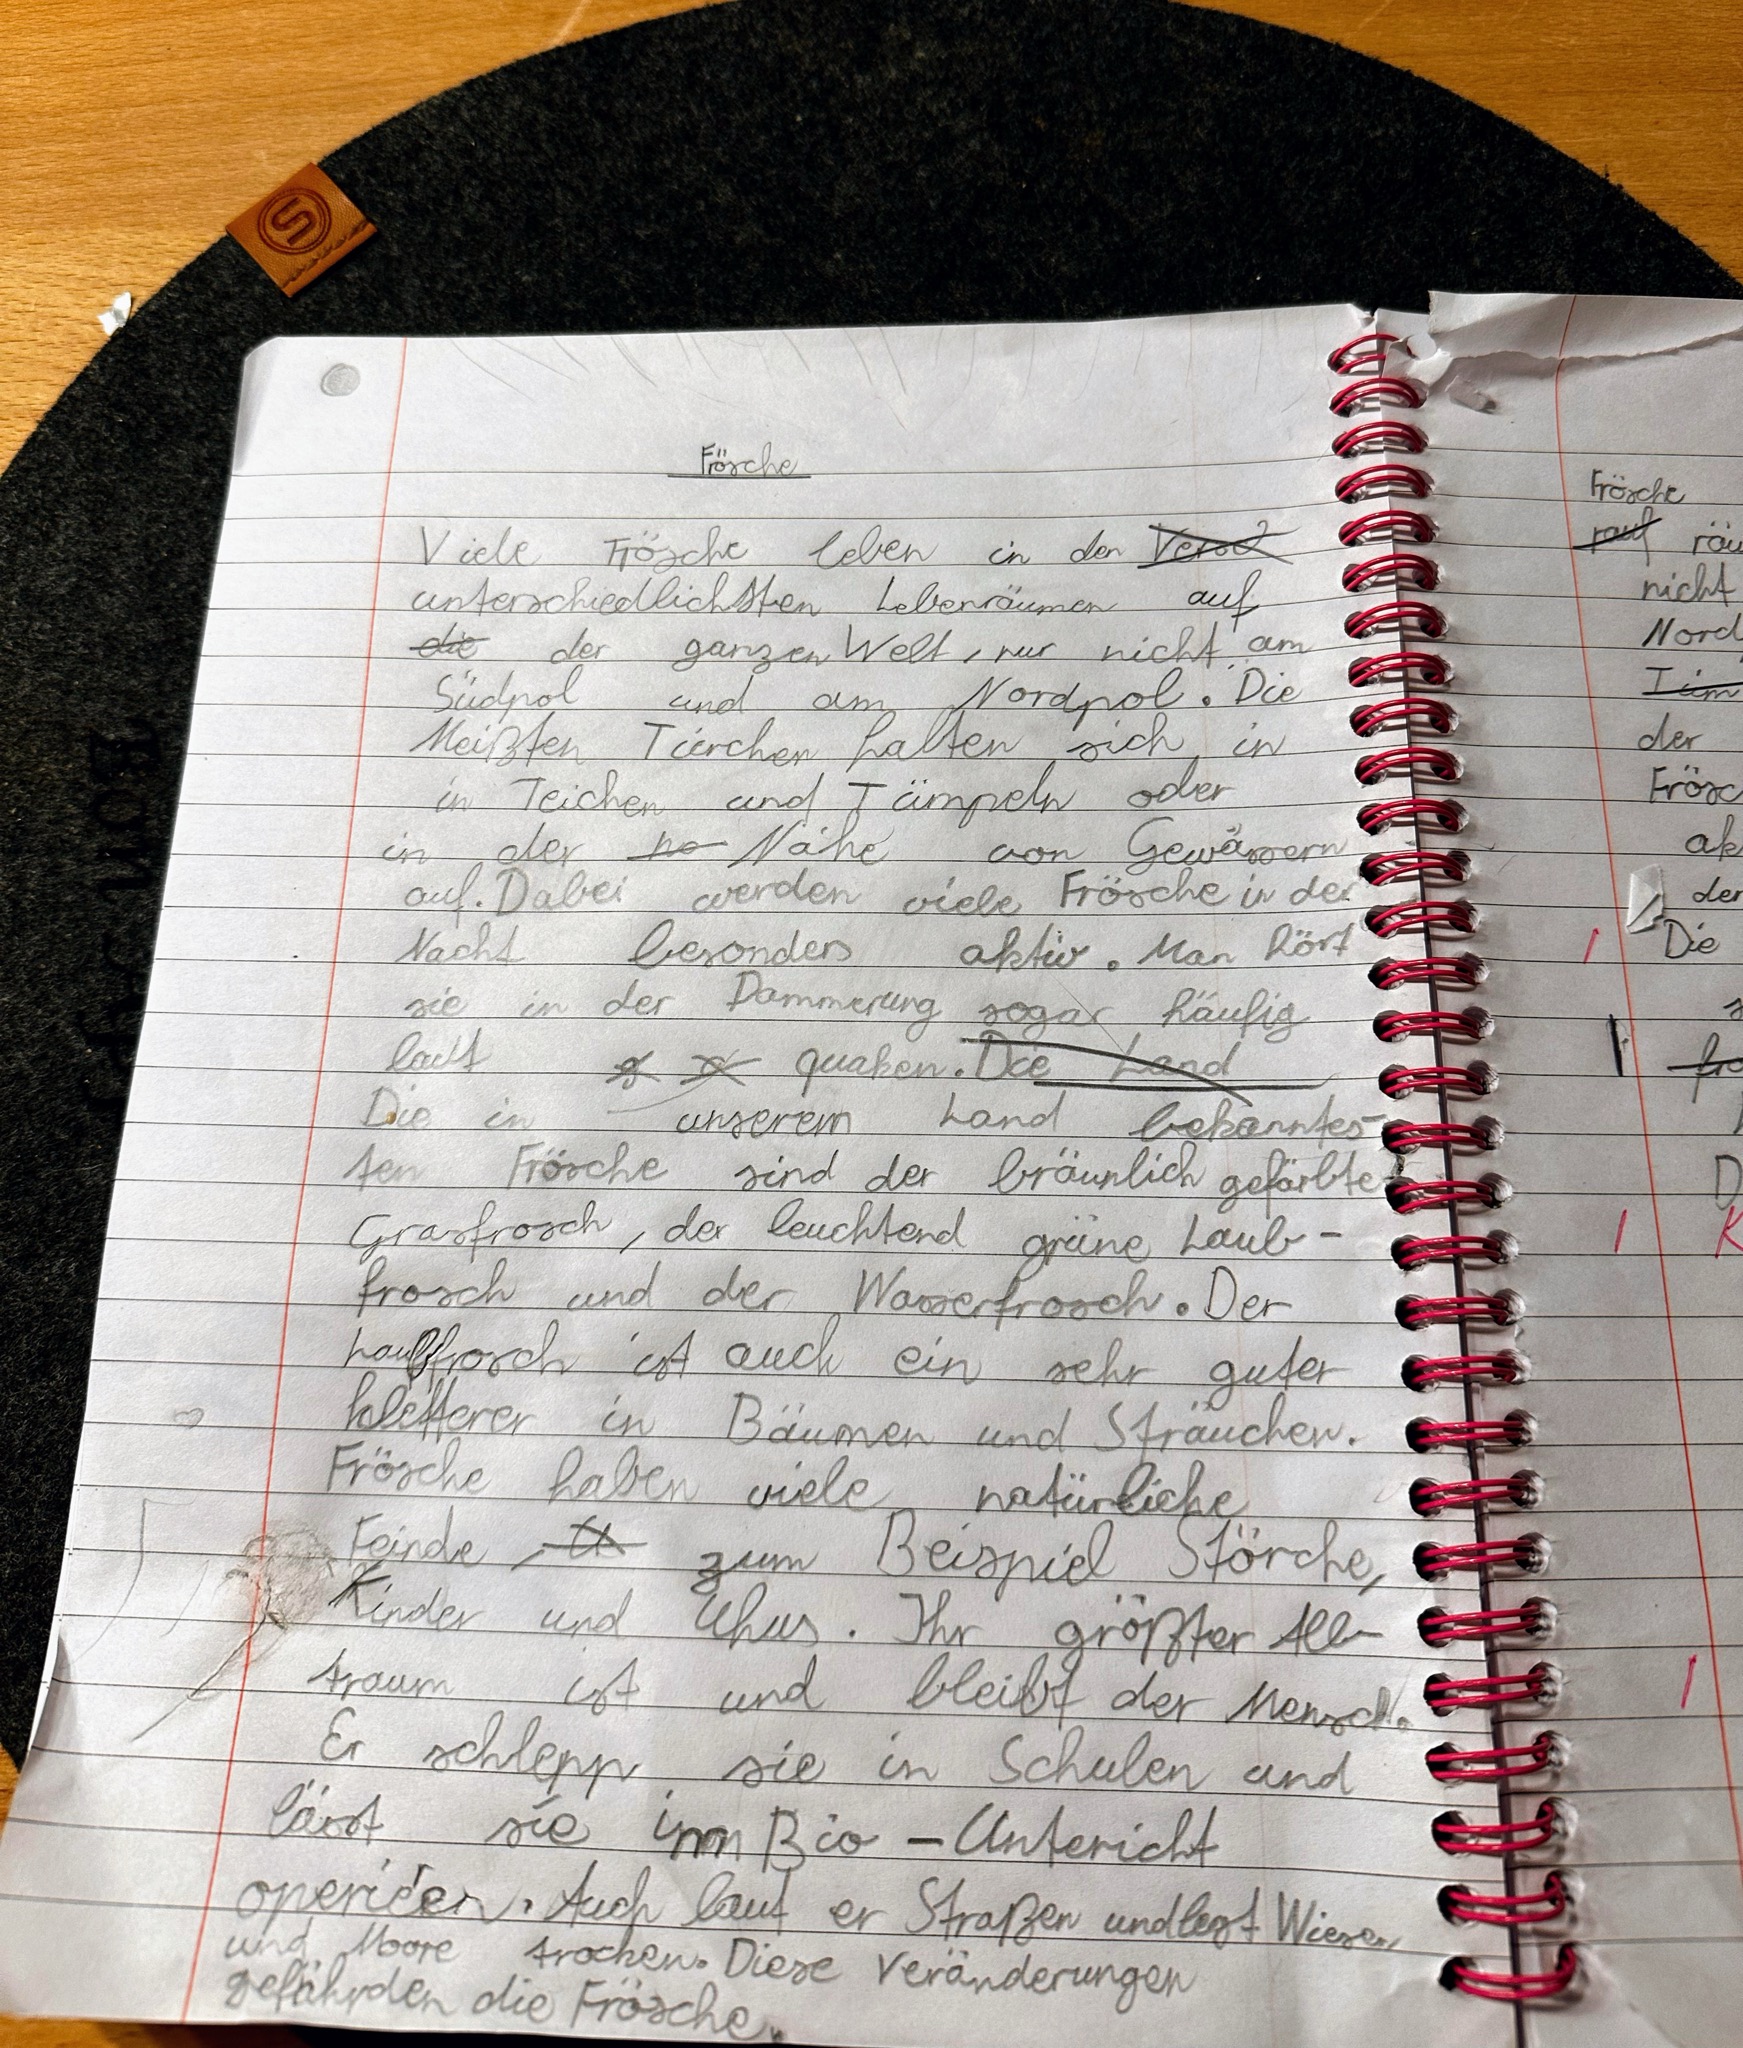 Frösche
Viele Frösche leben in den
unterschiedlichsten Lebenräumen auf
die der ganzen Welt, nur nicht am
Südpol und am Nordpol. Die
Meißten Tierchen halten sich in
in Teichen und Tümpeln oder
in der Nähe von Gewässern
auf. Dabei werden viele Frösche in der
Nacht besonders aktiv. Man hört
sie in der Dammerung sogar häufig
laut quaken. Die Land
Die in unserem Land bekanntes-
ten Frösche sind der bräunlich gefärbte
Grasfrosch, der leuchtend grüne Laub-
frosch und der Wasserfrosch. Der
Laubfrosch ist auch ein sehr guter
kletterer in Bäumen und Sträuchen.
Frösche haben viele natürliche
Feinde, zum Beispiel Störche,
Kinder und Uhus. Ihr größter Alb-
traum ist und bleibt der Mensch.
Er schlepp sie in Schulen und
lässt sie im Bio-Untericht
operieren. Auch baut er Straßen und legt Wiesen
und Moore trocken. Diese Veränderungen
gefährden die Frösche.
Frösche
rauf räu
nicht
Nord
Tüm
der
Frösc
ak
der
Die
D
K